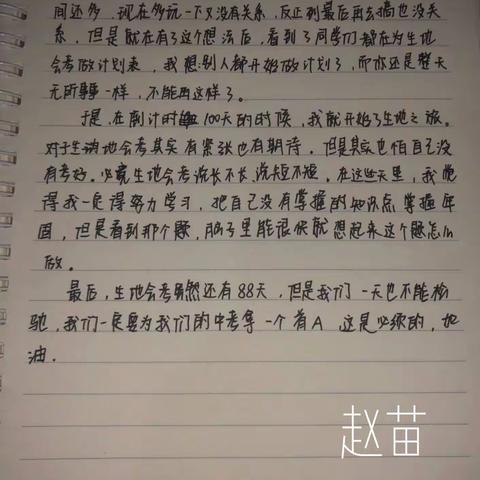 间还多,现在多玩一下又没有关系,反正到最后再去搞也没关
系,但是就在有了这个想法后,看到了同学们都在为生地
会考做计划表,我想:别人都开始做计划了,而你还是整天
无所事事一样,不能再这样了。
于是,在倒计时100天的时候,我就开始了生地之旅。
对于生地会考其实有紧张也有期待。但是其实也怕自己没
有考好。必竟生地会考说长不长,说短不短。在这些天里,我觉
得我一定得努力学习,把自己没有掌握的知识点掌握牢
固,但是看到那个题,脑子里能很快就想起来这个题怎么
做。
最后,生地会考虽然还有88天,但是我们一天也不能松
驰,我们一定要为我们的中考拿一个首A 这是必须的,加
油.
赵苗